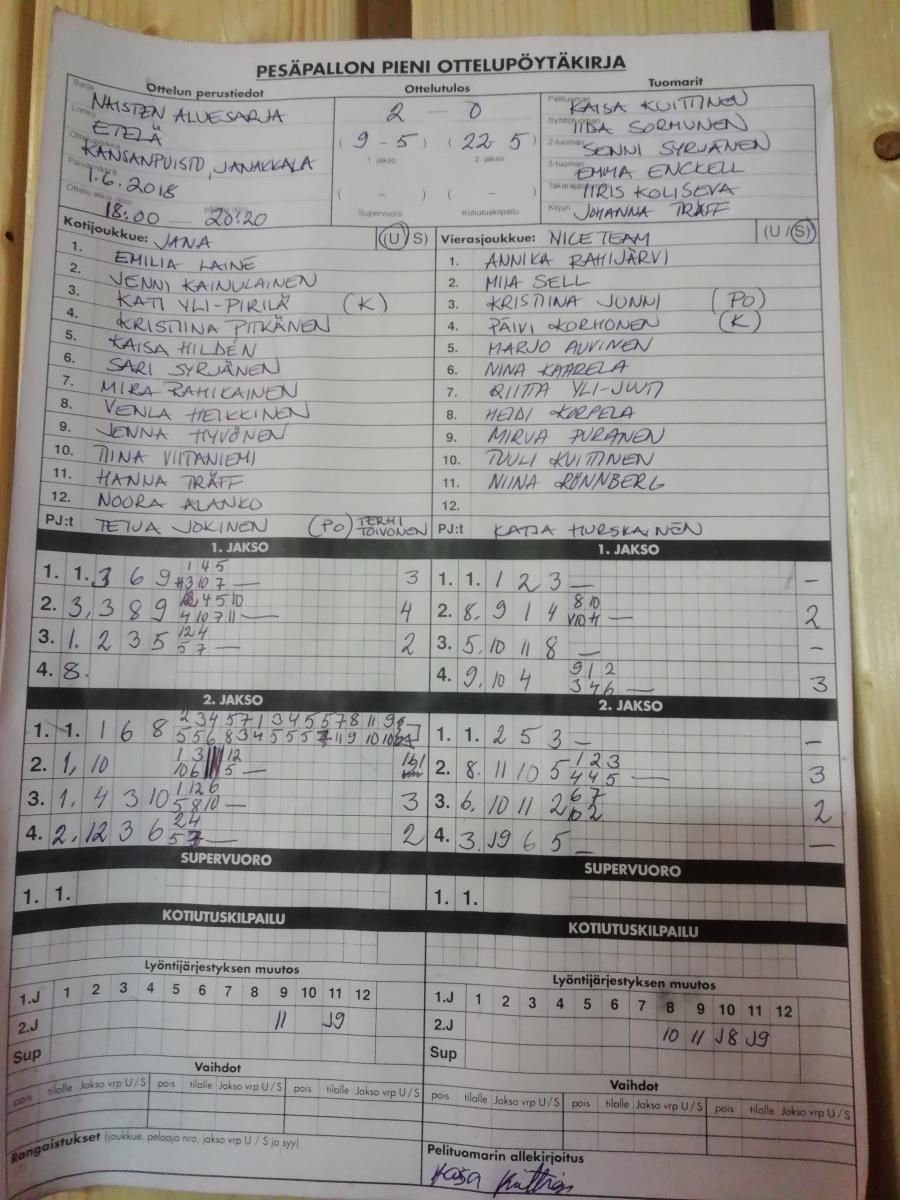 PESÄPALLON PIENI OTTELUPÖYTÄKIRJA
Ottelun perustiedot
Ottelutulos
Tuomarit
Sarja NAISTEN ALUESARJA
Lohko ETELÄ
KANSANPUISTO, JANAKKALA
Päivämäärä 1.6.2018
18:00 — 20:20
2 — 0
(9-5) (22-5)
1. jakso 2. jakso
( - ) ( - )
Supervuoro Kotiutuskilpailu
Pelituomari KAISA KUITTINEN
Syöttötuomari IIDA SORMUNEN
2-tuomari SENNI SYRJÄNEN
3-tuomari EMMA ENCKELL
Takaraja IIRIS KOLISEVA
Kirjuri JOHANNA TRÄFF
Kotijoukkue: JANA (U/S)
1. EMILIA LAINE
2. JENNI KAINULAINEN
3. KATI YLI-PIRILÄ (K)
4. KRISTIINA PITKÄNEN
5. KAISA HILDÉN
6. SARI SYRJÄNEN
7. MIRA RAHIKAINEN
8. VENLA HEIKKINEN
9. JENNA HYVÖNEN
10. TIINA VIITANIEMI
11. HANNA TRÄFF
12. NOORA ALANKO
PJ:t TEIJA JOKINEN (PO) TERHI TOIVONEN
Vierasjoukkue: NICE TEAM (U/S)
1. ANNIKA RAHIJÄRVI
2. MIIA SELL
3. KRISTIINA JUNNI (PO)
4. PÄIVI KORHONEN (K)
5. MARJO AUVINEN
6. NINA KAARELA
7. RIITTA YLI-JUUTI
8. HEIDI KORPELA
9. MIRVA PURANEN
10. TUULI KUITTINEN
11. NIINA RÖNNBERG
12.
PJ:t KATJA HURSKAINEN
1. JAKSO
1. 1. 3 6 9 1 4 5 3 10 7 — 3
2. 3. 3 8 9 4 5 10 4 10 7 11 — 4
3. 1. 2 3 5 12 4 5 7 — 2
4. 8.
1. JAKSO
1. 1. 1 2 3 — -
2. 8. 9 1 4 8 10 — 2
3. 5. 10 11 8 — -
4. 9. 10 4 9 1 2 3 4 6 — 3
2. JAKSO
1. 1. 1 6 8 2 3 4 5 7 1 3 4 5 5 7 8 11 9
5 5 6 8 3 4 5 5 5 11 9 10 10
2. 1. 10 1 3 12 10 6 5 —
3. 1. 4 3 10 1 12 6 5 8 10 — 3
4. 2. 12 3 6 2 4 5 — 2
2. JAKSO
1. 1. 2 5 3 — -
2. 8. 11 10 5 1 2 3 4 4 5 — 3
3. 6. 10 11 2 6 7 10 2 2
4. 3. J9 6 5 — —
SUPERVUORO
1. 1.
SUPERVUORO
1. 1.
KOTIUTUSKILPAILU
KOTIUTUSKILPAILU
Lyöntijärjestyksen muutos
1.J 1 2 3 4 5 6 7 8 9 10 11 12
2.J 11 J9
Sup
Lyöntijärjestyksen muutos
1.J 1 2 3 4 5 6 7 8 9 10 11 12
2.J 10 11 J8 J9
Sup
Vaihdot
pois tilalle Jakso vrp U / S pois tilalle Jakso vrp U / S pois tilalle Jakso vrp U / S
Vaihdot
pois tilalle Jakso vrp U / S pois tilalle Jakso vrp U / S pois tilalle Jakso vrp U / S
Rangaistukset (joukkue, pelaaja nro, jakso vrp U / S ja syy)
Pelituomarin allekirjoitus
Kaisa Kuittinen